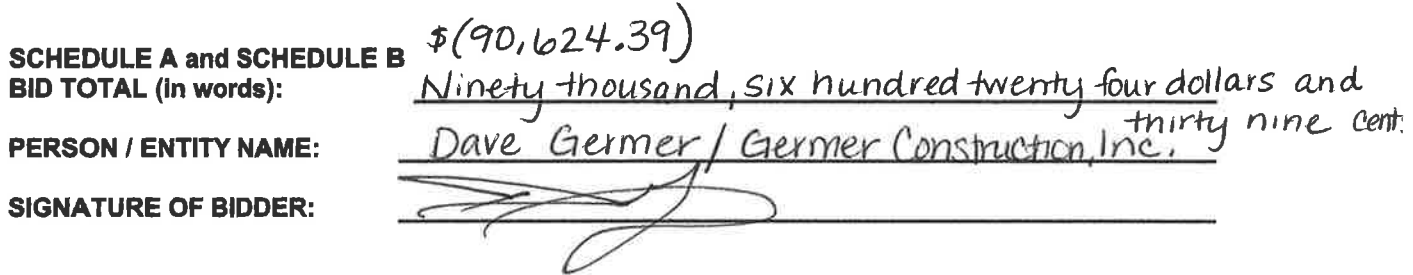 $(90,624.39)
SCHEDULE A and SCHEDULE B
BID TOTAL (in words): Ninety thousand, six hundred twenty four dollars and
thirty nine cents
PERSON / ENTITY NAME: Dave Germer / Germer Construction, Inc.
SIGNATURE OF BIDDER: